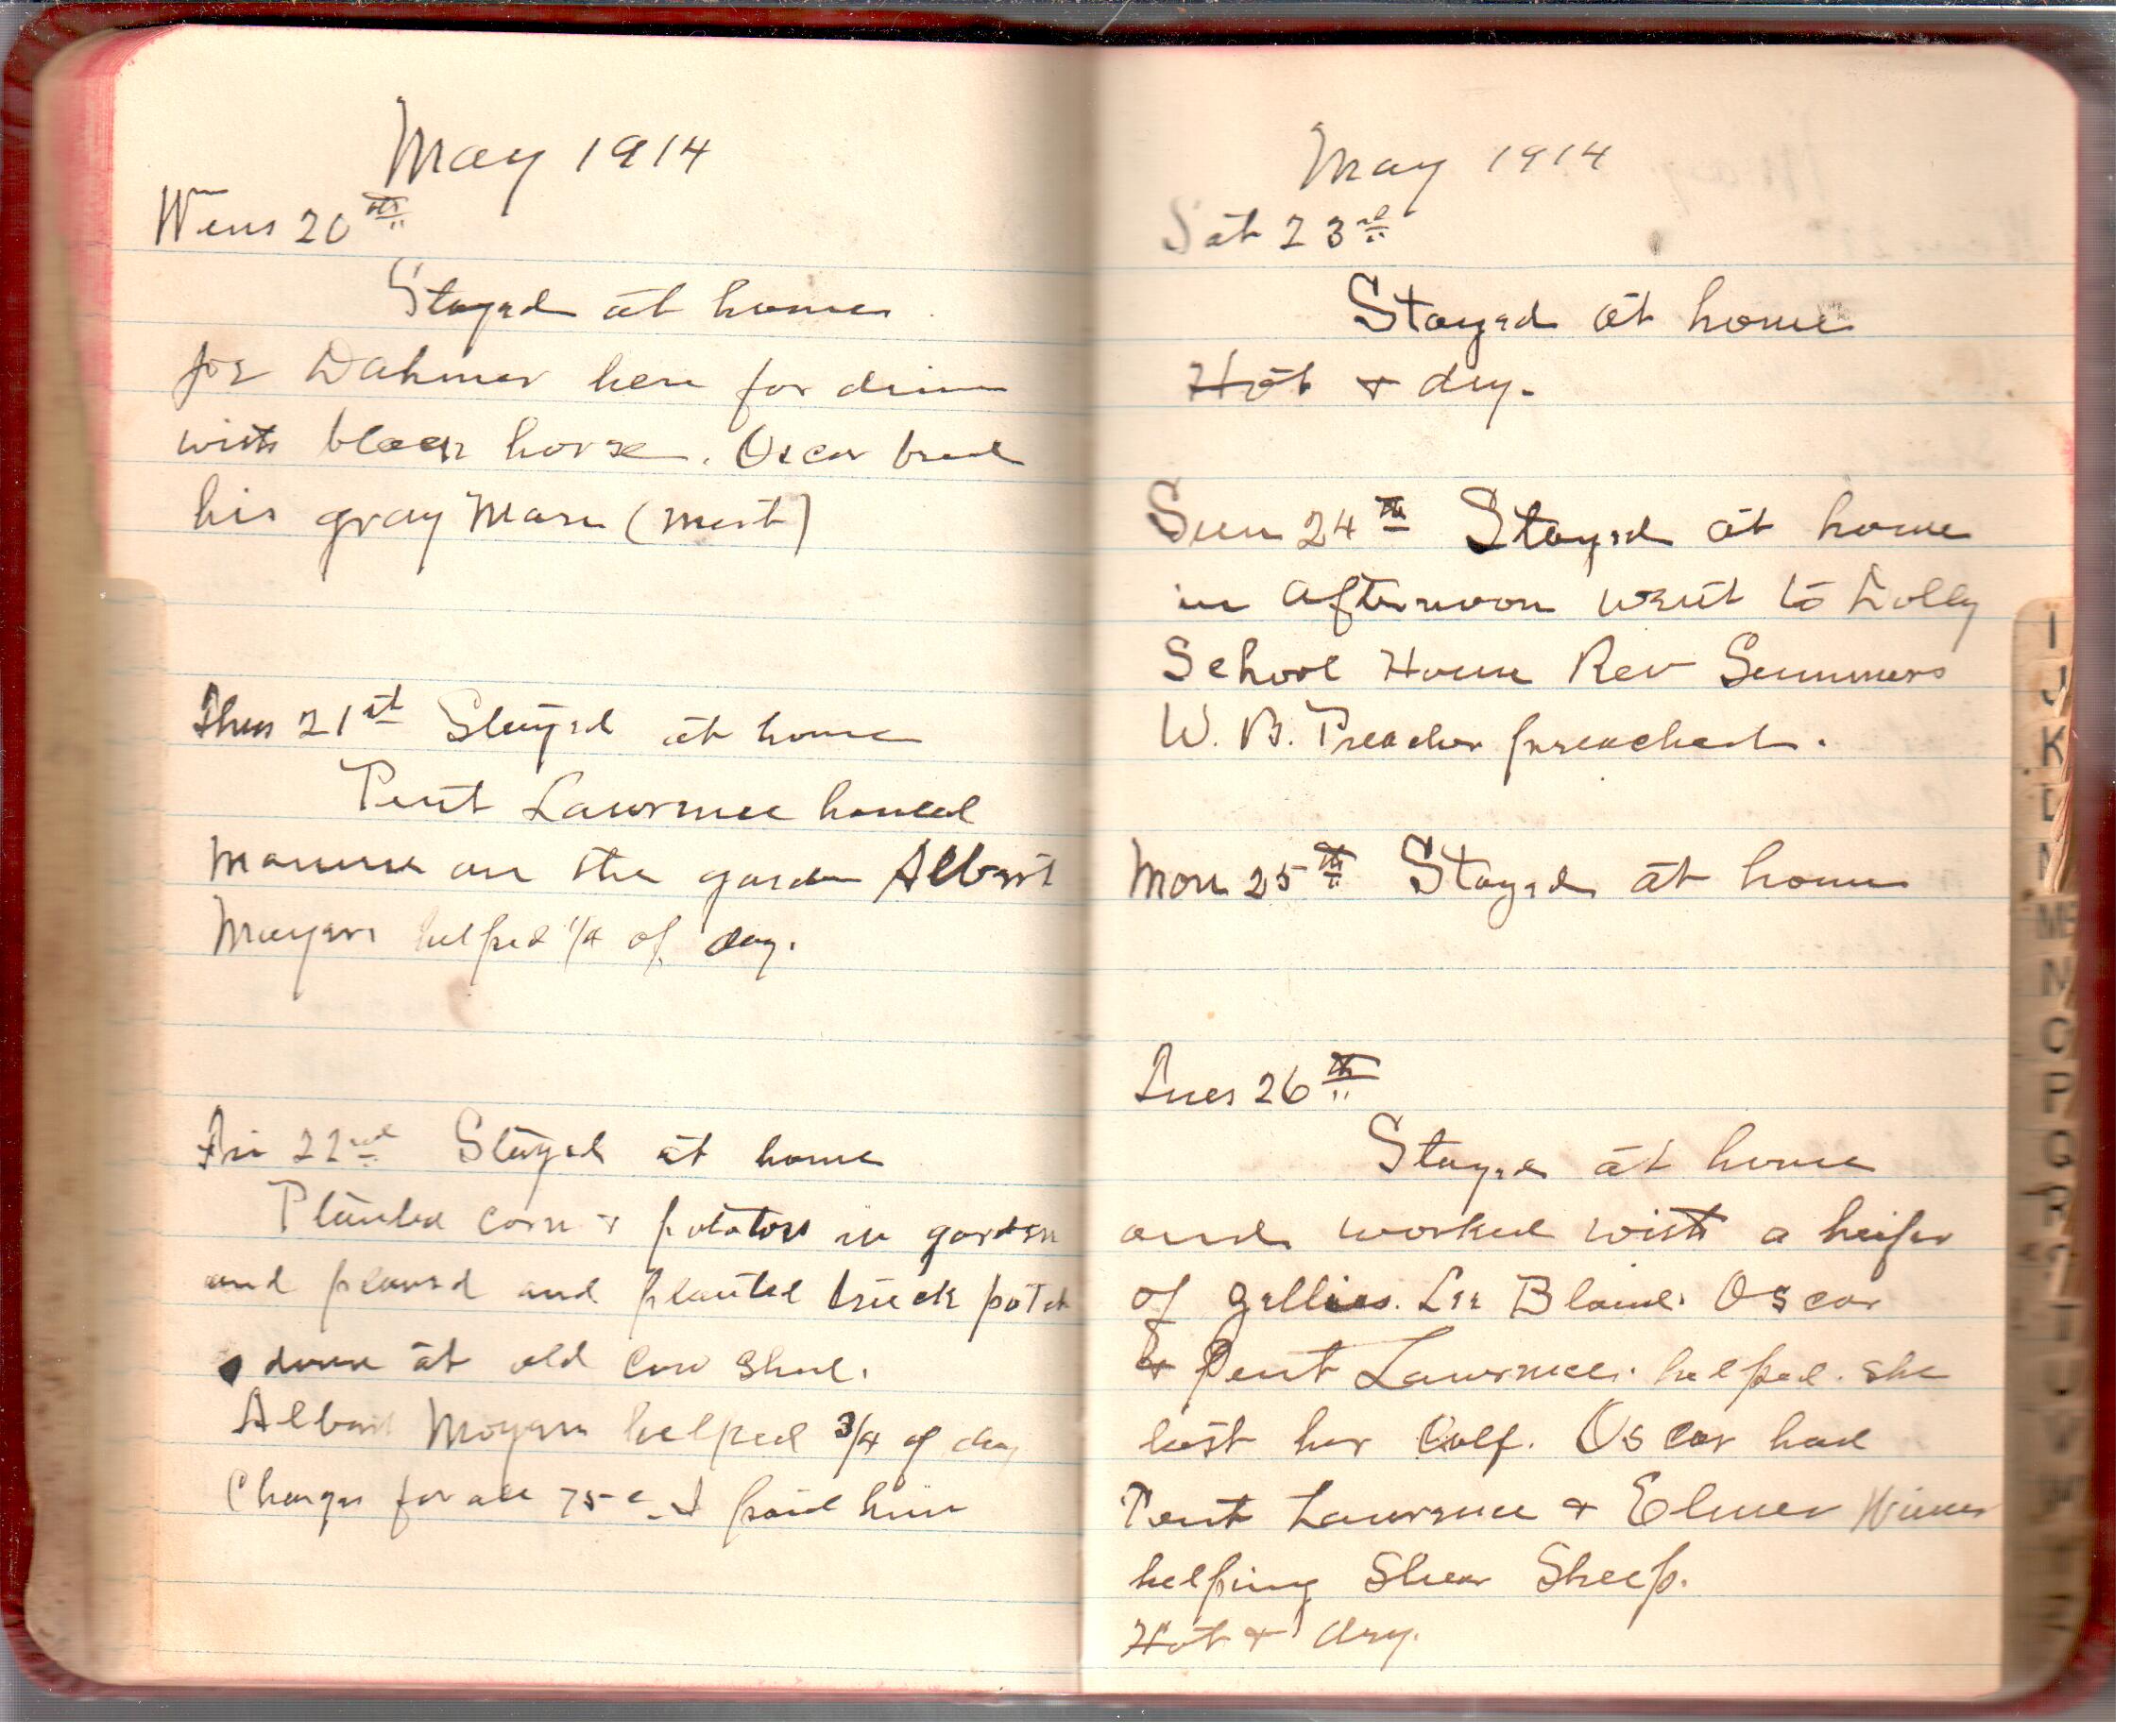 May 1914
Wens 20th
Stayed at home
Joe Dahmer here for dinner
with black horse. Oscar bred
his gray Mare (mist)
Thurs 21st Stayed at home
Pent Lawrence hauled
Manure on the garden Albert
Moyers helped 1/4 of day.
Fri 22nd Stayed at home
Planted corn & potatoes in garden
and plowed and planted truck potch
down at old cow shed.
Albert Moyers helped 3/4 of day
Charges for all 75 c I paid him
May 1914
Sat 23rd
Stayed at home
Hot & dry.
Sun 24th Stayed at home
in afternoon went to Dolly
School House Rev Summers
W. B. Preacher preached.
Mon 25th Stayed at home
Tues 26th
Stayed at home
and worked with a heifer
of Gellies. Lee Blaine. Oscar
& Pent Lawrence. helped. she
lost her Calf. Oscar had
Pent Lawrence & Elmer Wimer
helping Shear Sheep.
Hot & dry.
I
J
K
L
M
Mc
N
O
P
Q
R
S
T
U
V
W